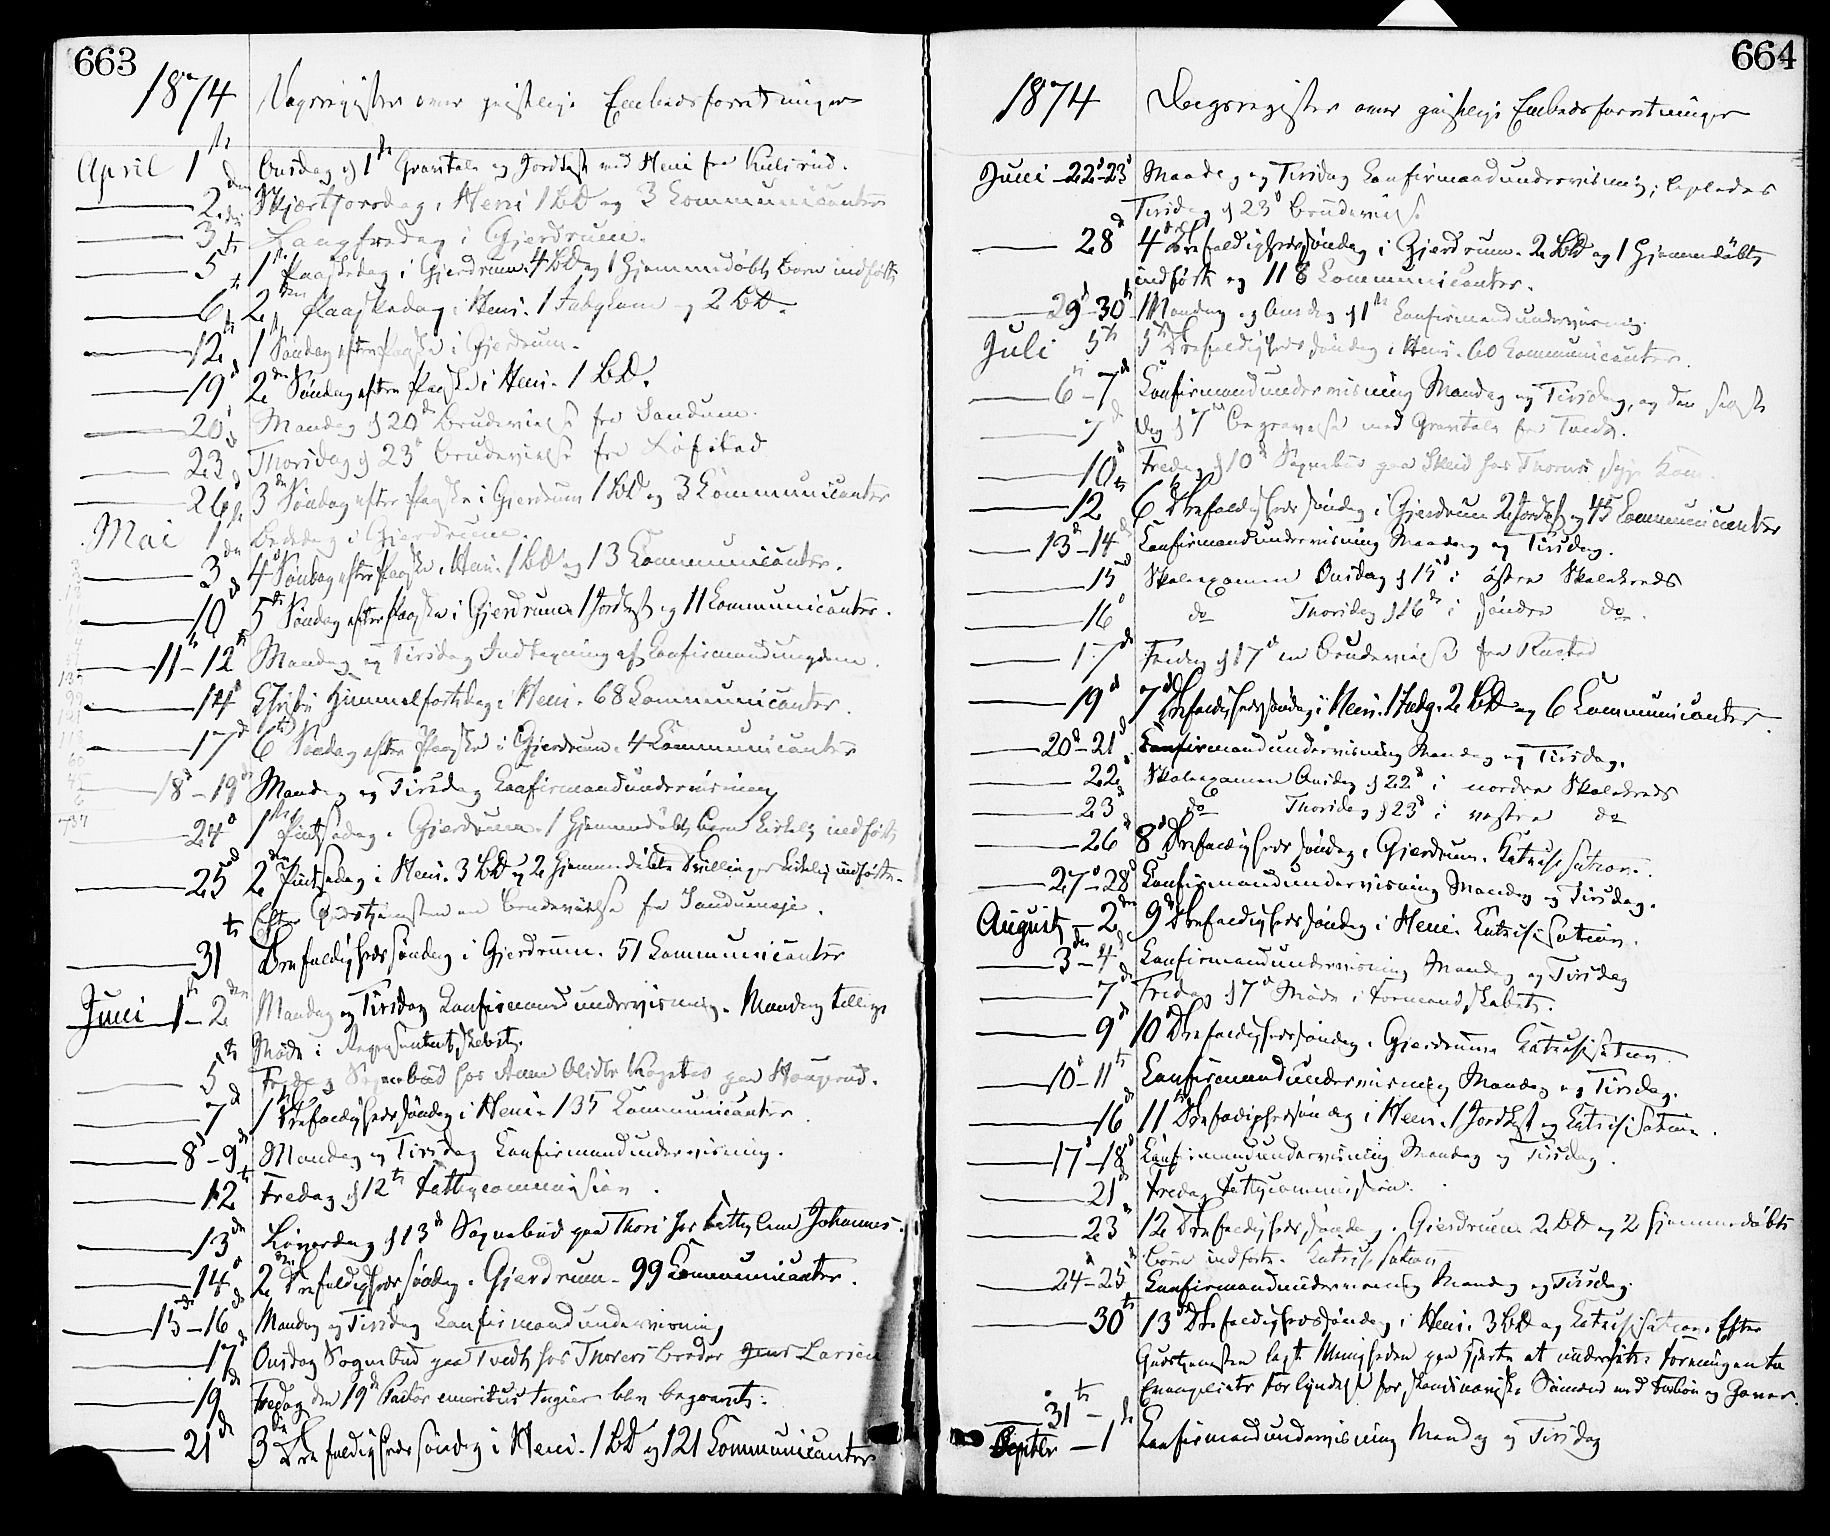 663
1874 Dagsregister over geistlige Embedsforretninger
April 1ste Onsdag d 1ste Gravtale og Jordkast ved Heni fra Kulsrud.
2den Skjærthorsdag i Heni 1 BD og 3 Communicanter
3die Langfredag i Gjerdrum.
5te 1ste Paaskedag i Gjerdrum. 4 BD og 1 Hjemmedøbt Barn indført
6te 2den Paaskedag i Heni. 1 og 2 BD.
12te 1ste Søndag efter Paaske i Gjerdrum.
19d 2den Søndag efter Paaske i Heni. 1 BD.
20d Mandag d 20d Brudevielse fra Sandum.
23d Thorsdag d 23d Brudevielse fra Løfstad
26d 3die Søndag efter Paaske i Gjerdrum 1 BD og 3 Communicanter
Mai 1ste Bededag i Gjerdrum.
3die 4d Søndag efter Paaske i Heni. 1 BD og 13 Communicanter.
10d 5te Søndag efter Paaske i Gjerdrum. 1 Jordkast og 11 Communicanter.
11te-12te Mandag og Tirsdag Indtegning af Confirmandungdom.
14d Christi Himmelfartsdag i Heni. 68 Communicanter.
17d 6te Søndag efter Paaske i Gjerdrum. 4 Communicanter
18d-19d Mandag og Tirsdag Confirmandundervisning
24d 1ste Pintsedag i Gjerdrum. 1 Hjemmedøbt Barn kirkelig indført
25d 2den Pintsedag i Heni. 3 BD og 2 hjemmedøbte Tvillinger kirkelig indførte.
Efter Gudstjenesten en Brudevielse fra Sandumeje.
31te Trefoldighedssøndag i Gjerdrum. 51 Communicanter
Juni 1ste-2den Mandag og Tirsdag Confirmandundervisning. Mandag tillige
Møde i Repræsentantskabet.
5te Fredag Sognebud hos Anne paa
7d 1ste Trefoldighedssøndag i Heni. 135 Communicanter
8d-9d Mandag og Tirsdag Confirmandundervisning.
12te Fredag d 12te Fattigcommission.
13d Løverdag d 13d Sognebud paa Thori hos Fattiglem Johannes.
14d 2den Trefoldighedssøndag i Gjerdrum. 99 Communicanter.
15d-16d Mandag og Tirsdag Confirmandundervisning
17d Onsdag Sognebud paa Tvedt hos Thorers broder Jens Larsen
19d Fredag den 19d Pastor emeritus begravet.
21d 3die Trefoldighedssøndag i Heni. 1 BD og 121 Communicanter
664
1874 Dagsregister over geistlige Embedsforretninger
Juni 22d-23d Mandag og Tirsdag Confirmandundervisning;
Tirsdag d 23d Brudevielse
28d 4d Trefoldighedssøndag i Gjerdrum. 2 BD og 1 Hjemmedøbt
indført og 118 Communicanter.
29d-30te Mandag og Onsdag d 1ste Confirmandundervisning.
Juli 5te 5te Trefoldighedssøndag i Heni. 60 Communicanter.
6-7d Confirmandundervisning Mandag og Tirsdag, og den
7d Dag d 7d Begravelse med Gravtale fra Tvedt.
10d Fredag d 10d Sognebud paa hos
12te 6 Trefoldighedssøndag i Gjerdrum 2 Jordkast og 45 Communicanter
13d-14d Confirmandundervisning Mandag og Tirsdag.
15d Skolexamen Onsdag d 15d i østre Skolekreds
16d do Thorsdag d 16de i søndre do.
17de Fredag d 17d en Brudevielse fra Rustad
19d 7d Trefoldighedssøndag i Heni. 1 Indg. 2 BD og 6 Communicanter.
20d-21d Confirmandundervisning Mandag og Tirsdag.
22d Skolexamen Onsdag d 22d i nordre Skolekreds
23d do Thorsdag d 23d i vestre do
26d 8d Trefoldighedssøndag i Gjerdrum. Katechisation.
27d-28d Confirmandundervisning Mandag og Tirsdag.
August 2den 9d Trefoldighedssøndag i Heni. Katechisation.
3die-4d Confirmandundervisning Mandag og Tirsdag
7d Fredag d 7d Møde i Formandskabet.
9d 10d Trefoldighedssøndag i Gjerdrum Katechisation.
10d-11te Confirmandundervisning Mandag og Tirsdag.
16d 11te Trefoldighedssøndag i Heni. 1 Jordkast og Katechisation.
17d-18d Confirmandundervisning Mandag og Tirsdag.
21d Fredag Fattigcommission.
23d 12 Trefoldighedssøndag i Gjerdrum 2 BD og 2 hjemmedøbte
Børn indførte. Katechisation
24d-25d Confirmandundervisning Mandag og Tirsdag.
30te 13d Trefoldighedssøndag i Heni. 3 BD og Katechisation. Efter
Gudstjenesten lagt Menigheden paa Hjerte at understøtte Foreningen til
Evangeliets Forkyndelse for skandinaviske Sømænd med Forbøn og Gaver.
31te-
Septbr 1d Confirmandundervisning Mandag og Tirsdag